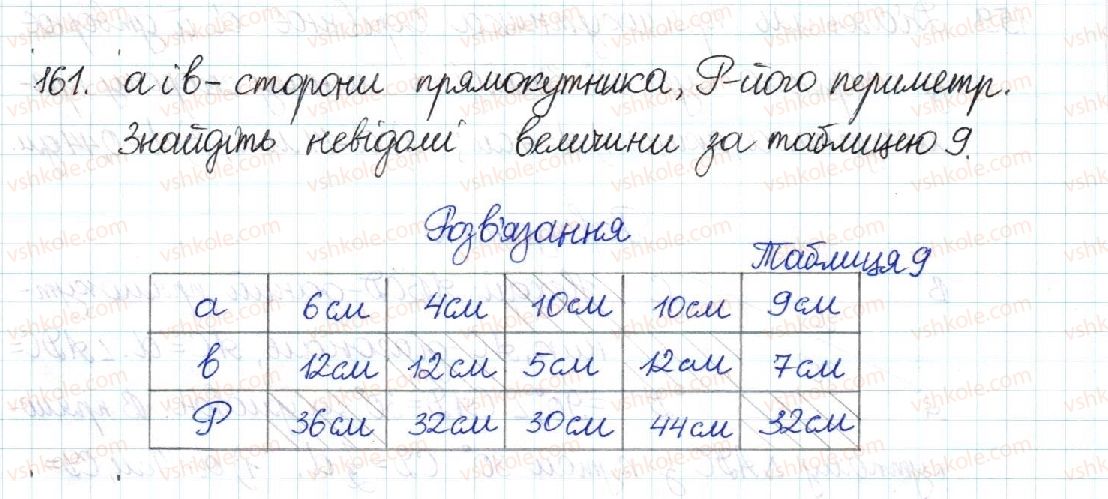 161. a i b – сторони прямокутника, P – його периметр.
Знайдіть невідомі величини за таблицею 9.
Розв'язання
Таблиця 9
a 6см 4см 10см 10см 9см
b 12см 12см 5см 12см 7см
P 36см 32см 30см 44см 32см